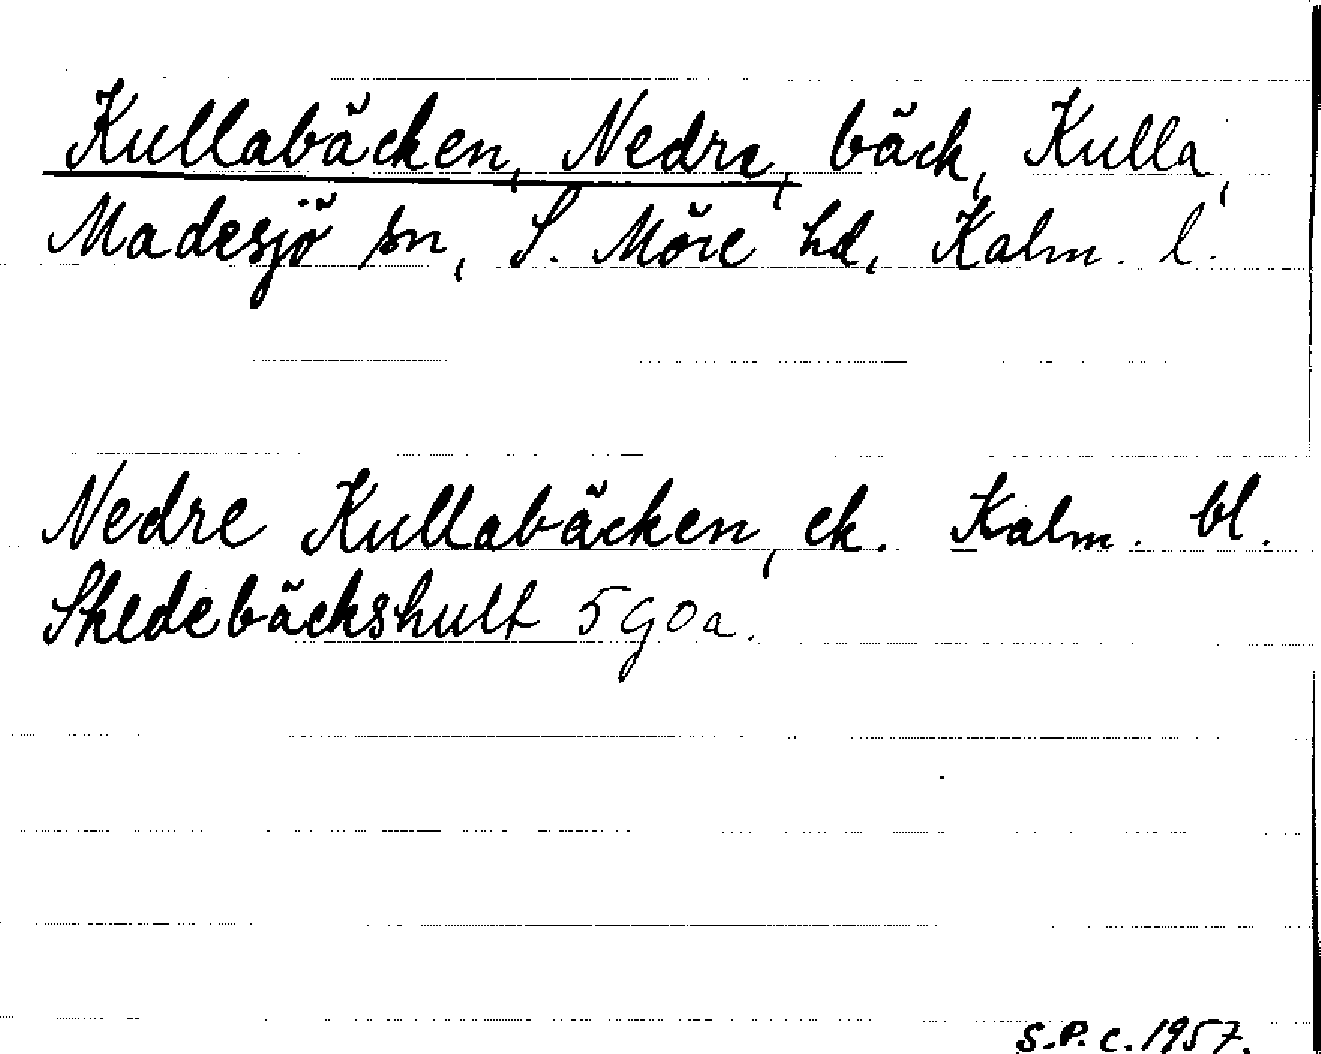 Kullabäcken, Nedre, bäck, Kulla,
Madesjö sn, S. Möre hd, Kalm. l.
Nedre Kullabäcken, ek. Kalm. bl.
Skedebäckshult 5 G o a.
S.P.c. 1957.